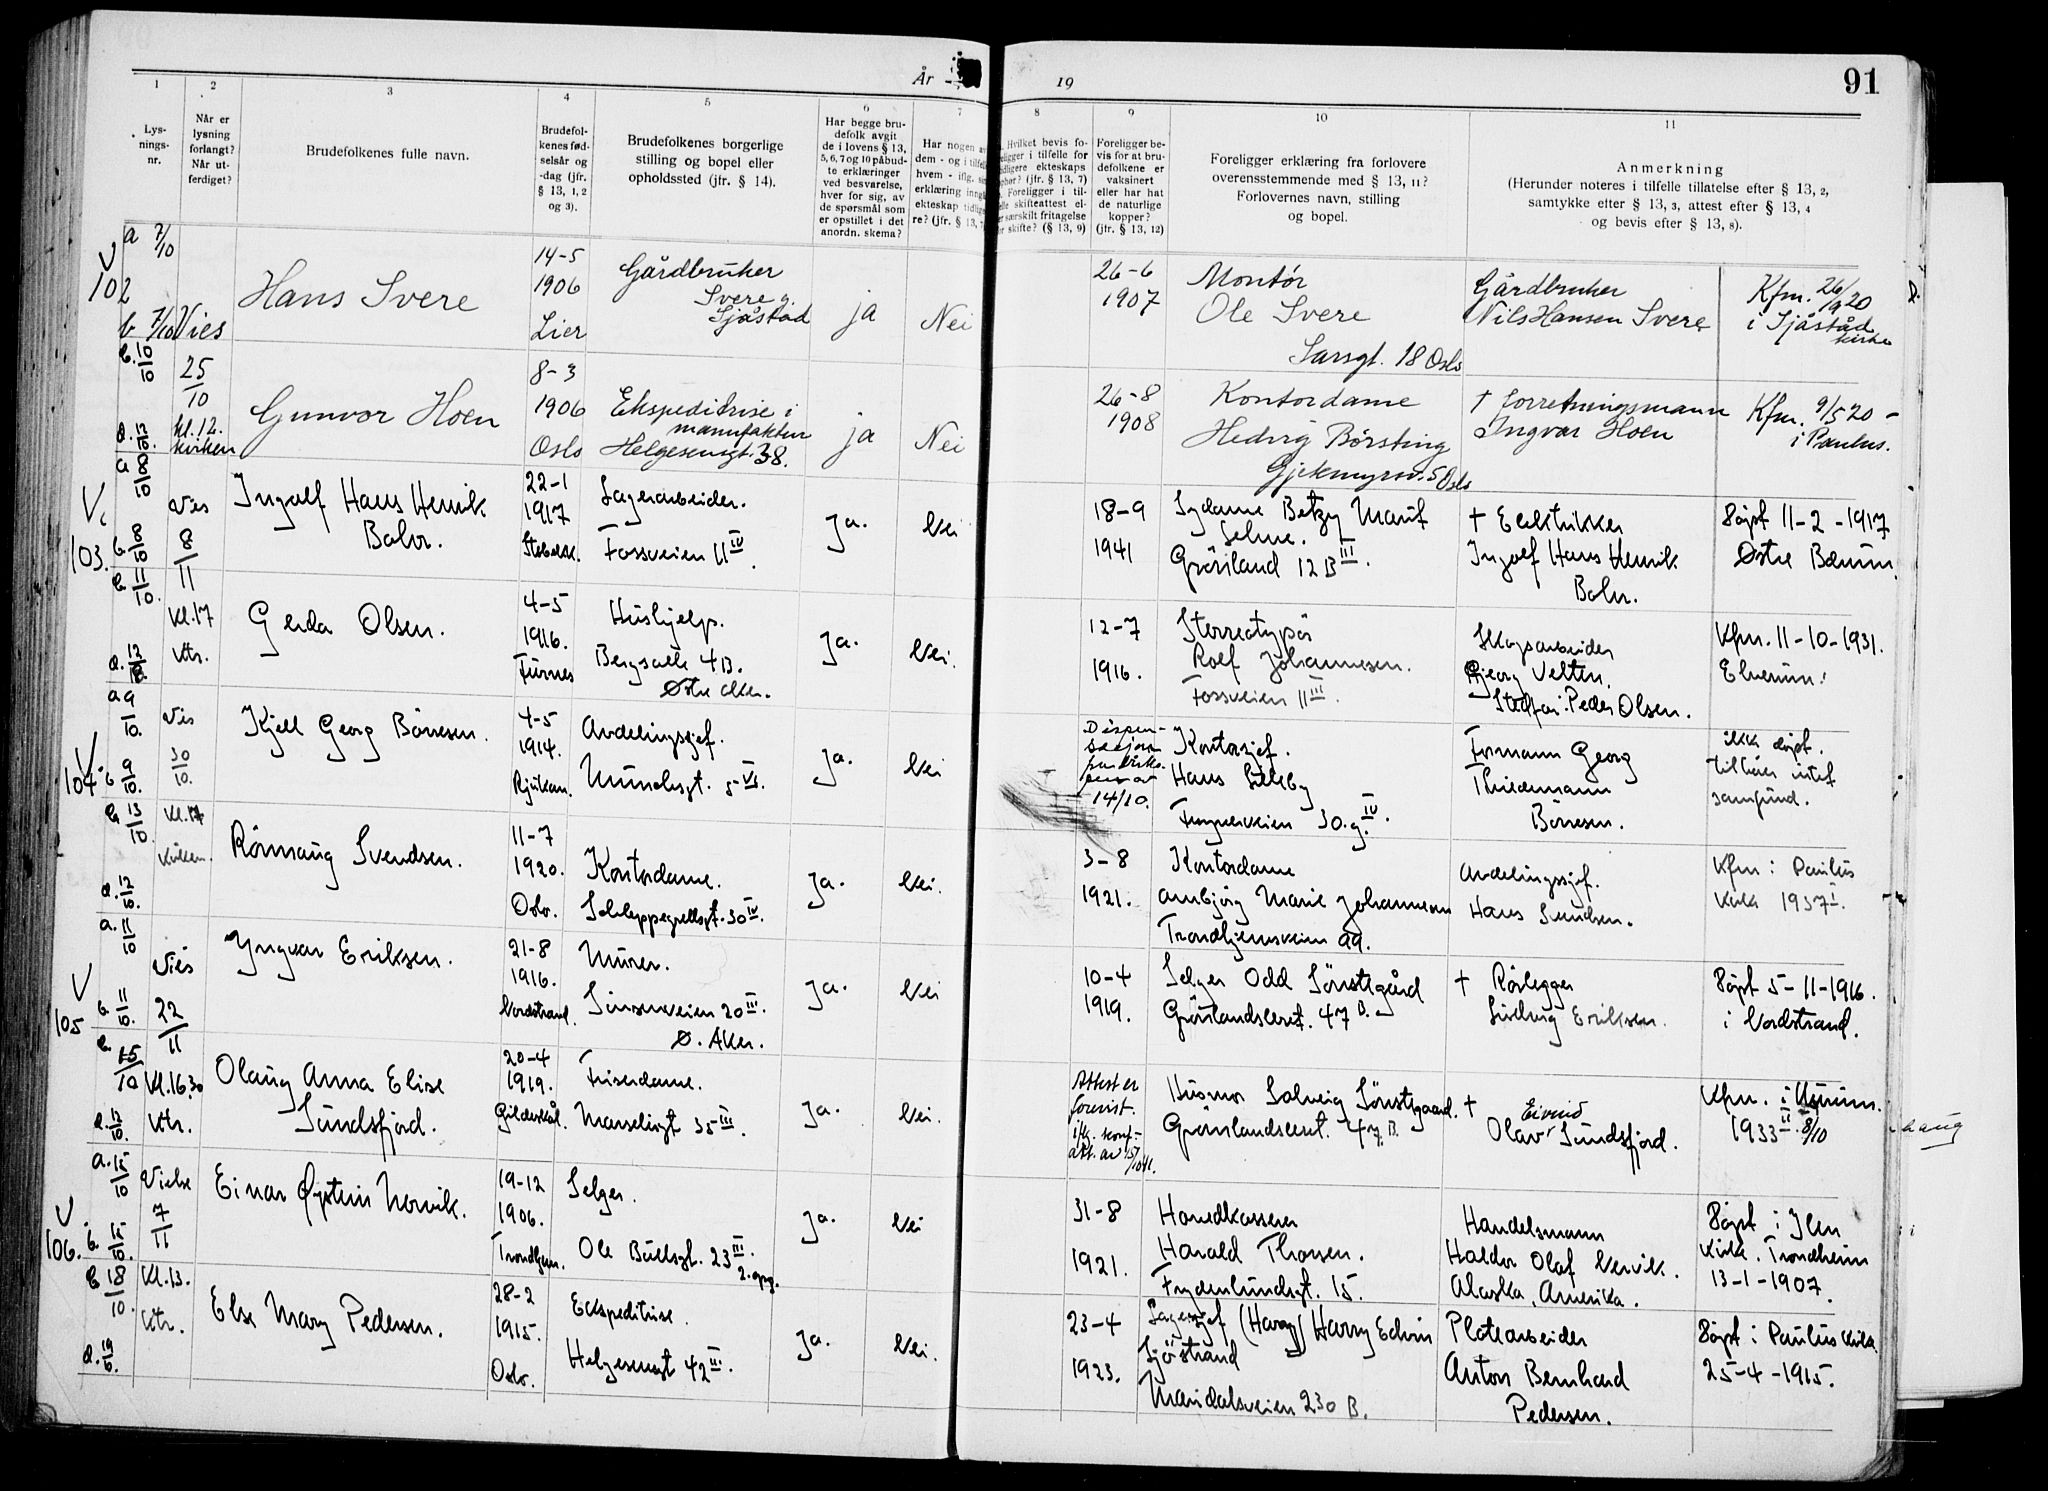 År
19
91
1
2
3
4
5
6
7
8
9
10
11
Lys-
nings-
nr.
Når er
lysning
forlangt?
Når ut-
ferdiget?
Brudefolkenes fulle navn.
Brudefol-
kenes fød-
selsår og
-dag (jfr.
§ 13, 1, 2
og 3).
Brudefolkenes borgerlige
stilling og bopel eller
opholdssted (jfr. § 14).
Har begge bru-
defolk avgit
de i lovens § 13,
5, 6, 7 og 10 påbud-
te erklæringer
ved besvarelse,
hver for sig, av
de spørsmål som
er opstillet i det
anordn. skema?
Har nogen av
dem - og i tilfelle
hvem - iflg. sin
erklæring inngått
ekteskap tidlige-
re? (jfr. § 13,
Hvilket bevis fo-
religger i tilfelle for
tidligere ekteskaps
ophør? (jfr. § 13, 7)
Foreligger i til-
felle skifteattest el-
ler særskilt fritagelse
for skifte? (§ 13, 9)
Foreligger be-
vis for at bru-
defolkene er
vaksinert
eller har hat
de naturlige
kopper?
(jfr. § 13, 12)
Foreligger erklæring fra forlovere
overensstemmende med § 13, 11?
Forlovernes navn, stilling
og bopel.
Anmerkning
(Herunder noteres i tilfelle tillatelse efter § 13, 2,
samtykke efter § 13, 3, attest efter § 13, 4
og bevis efter § 13, 8).
102
a 7/10
b 7/10 Vies
Hans Svere
14-5
1906
Lier
Gårdbruker
Svere g.
Sjåstad
ja
Nei
26-6
1907
Montør
Ole Svere
Sarsgt. 18 Oslo
Gårdbruker
Nils Hansen Svere
Kfm. 26/9 20
i Sjåstad
kirke
25/10
kl. 12.
kirken
Gunvor Hoen
8-3
1906
Oslo
Ekspeditrise i
manufaktur
Helgesensgt. 38.
ja
Nei
26-8
1908
Kontordame
Hedvig Børsting
Gjetemyrsv. 5 Oslo
† forretningsmann
Ingvar Hoen
Kfm. 9/5 20 -
i Paulus.
103.
a 8/10
b 8/10
Vies
8/11
Ingolf Hans Henrik
Bohr.
22-1
1917
Stabekk.
Lagerarbeider.
Fossveien 11 IV.
Ja.
Nei
18-9
1941
Sydame Betzy Marit
Selme.
Grønland 12 B III.
† Elektrikker
Ingolf Hans Henrik
Bohr.
Døpt 11-2-1917
Østre Bærum.
11/10.
Kl. 17
Ktr.
d. 12/10
Gerda Olsen.
4-5
1916.
Furnes
Hushjelp.
Bergsalle 4 B.
Østre Aker.
Ja.
Nei.
12-7
1916.
Stereotypør
Rolf Johannesen.
Fossveien 11 III.
Skogsarbeider
Georg Velten.
Stedfar: Peder Olsen.
Kfm. 11-10-1931.
Elverum.
104
a 9/10.
b 9/10.
Vies
30/10.
Kjell Georg Børresen.
4-5
1914.
Rjukan.
Avdelingssjef.
Munchsgt. 5 VI.
Ja.
Nei
Dispen-
sasjon
14/10.
Kontorsjef.
Hans Lilleby
Frognerveien 30.g. IV.
Formann Georg
Thiedemann
Børresen.
ikke døpt.
Tilhører intet
samfund.
13/10.
Kl. 17
Kirken.
d. 12/10.
Rønnaug Svendsen.
11-7
1920.
Oslo.
Kontordame.
Schleppegrellsgt. 30 IV.
Ja.
Nei.
3-8
1921.
Kontordame
Annbjörg Marie Johannesen
Trondhjemsveien 99.
Avdelingssjef.
Hans Svendsen.
Kfm i Paulus
Kirke 1937 I.
105
a. 11/10
b. 11/10.
Vies
22/11
Yngvar Eriksen.
21-8
1916.
Nordstrand.
Murer.
Sinsenveien 20 III.
Ø. Aker.
Ja.
Nei
10-4
1919.
Selger Odd Sönstegård
Grønlandsleret. 47 B.
† Rørlegger
Eriksen.
Døpt 5-11-1916.
i Nordstrand.
15/10
Kl. 16.30
Ktr.
d. 12/10.
Olaug Anna Elise
Sundsfjord.
20-4
1919.
Gildeskål.
Friserdame.
Marselisgt 35 III.
Ja.
Nei.
Attest er
forevist.
Husmor Solveig Sönstegaard.
Grønlandsleret. 47 B.
†
Eivind
Olav Sundsfjord.
Kfm. i
1933 II 8/10
haug
106.
a. 15/10
b. 15/10.
Vielse
7/11
Einar Øystein Norvik.
19-12
1906.
Trondhjem.
Selger.
Ole Bullsgt. 23 III
2. opg.
Ja.
Nei
31-8
1921.
Hovedkasserer
Harald Thoresen.
Frydenlundsgt. 15.
Handelsmann
Haldor Olaf Nervik.
Alaska, Amerika.
Døpt i Ilen
Kirke. Trondheim
13-1-1907.
18/10.
Kl. 13.
Ktr.
Else Mary Pedersen.
28-2
1915.
Oslo.
Ekspeditrise.
Helgesensgt 42 II.
Ja.
Nei.
23-4
1923.
Lagersjef (Harry) Harry Edvin
Sjöstrand
Maridalsveien 230 B.
Platearbeider
Anton Bernhard
Pedersen.
Døpt i Paulus Kirke
25-4-1915.